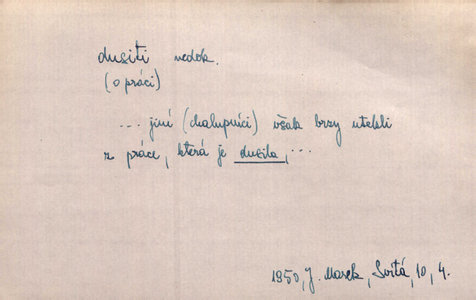 dusiti nedok.
(o práci)
... jiní (chalupníci) však brzy utekli
z práce, která je dusila, ...
1950, J. Marek, Svítá, 10, 4.